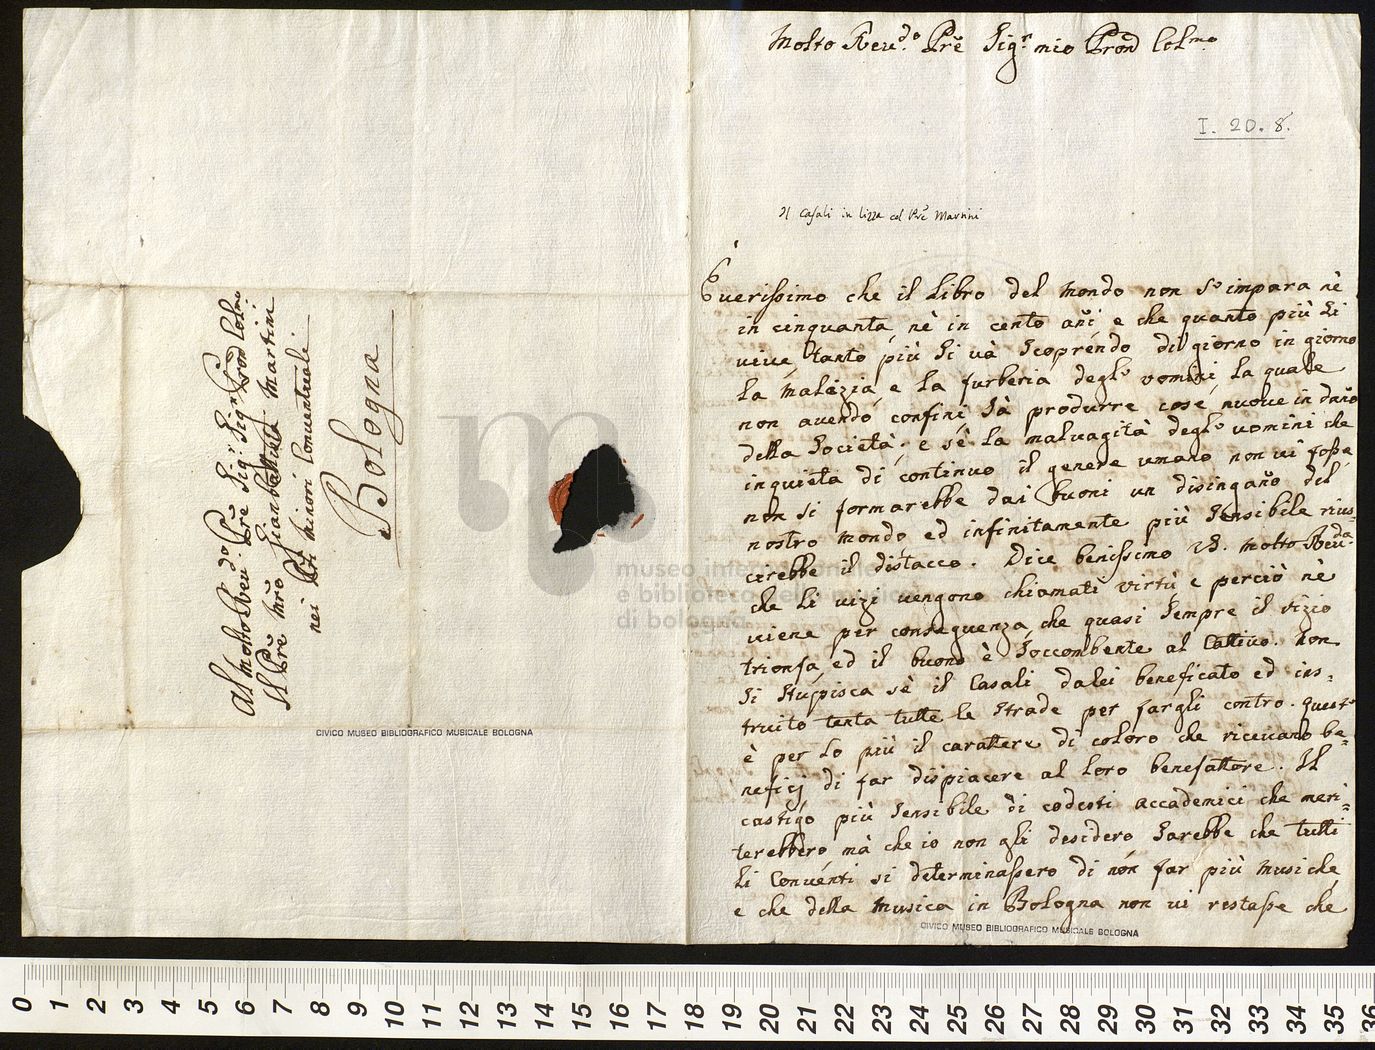 Al molto Reu.do Prẽ Sig.r Sig.r Prõn Colmo
Il Prẽ Mrõ Gianbattista Martini
nei Prĩ minori Conuentuali
Bologna
CIVICO MUSEO BIBLIOGRAFICO MUSICALE BOLOGNA
Molto Reu.do Prẽ Sig.r mio Prõn Colmo
I. 20. 8.
Il Casali in lizza col Prẽ Martini
È uerissimo che il Libro del Mondo non s'impara nè
in cinquanta, nè in cento añi, e che quanto più si
uiue, tanto più si uà scoprendo di giorno in giorno
la malizia, e la furberia degl' uomini, la quale
non auendo confini sà produrre cose nuoue in dañο
della Società; e sè la maluagità degl' uomini che
inquieta di continuo il genere umano non ui fosse,
non si formarebbe dai buoni un disingaño del
nostro mondo, ed infinitamente più sensibile rius=
cirebbe il distacco. Dice benissimo V.S. Molto Reu.da
che li uizi uengono chiamati uirtù e perciò nè
uiene per conseguenza, che quasi sempre il uizio
trionfa, ed il buono è soccombente al Cattiuo. Non
si stupisca sè il Casali da lei beneficato ed ins=
truito tenta tutte le strade per fargli contro. Questo
è per lo più il carattere di coloro che riceuano be=
neficj di far dispiacere al loro benefattore. Il
castigo più sensibile di codesti accademici che meri=
terebbero, mà che io non gli desidero sarebbe che tutti
li Conuenti si determinassero di non far più musiche,
e che della musica in Bologna non ui restasse che
CIVICO MUSEO BIBLIOGRAFICO MUSICALE BOLOGNA
museo internazionale
e biblioteca della musica
di bologna
0 1 2 3 4 5 6 7 8 9 10 11 12 13 14 15 16 17 18 19 20 21 22 23 24 25 26 27 28 29 30 31 32 33 34 35 36